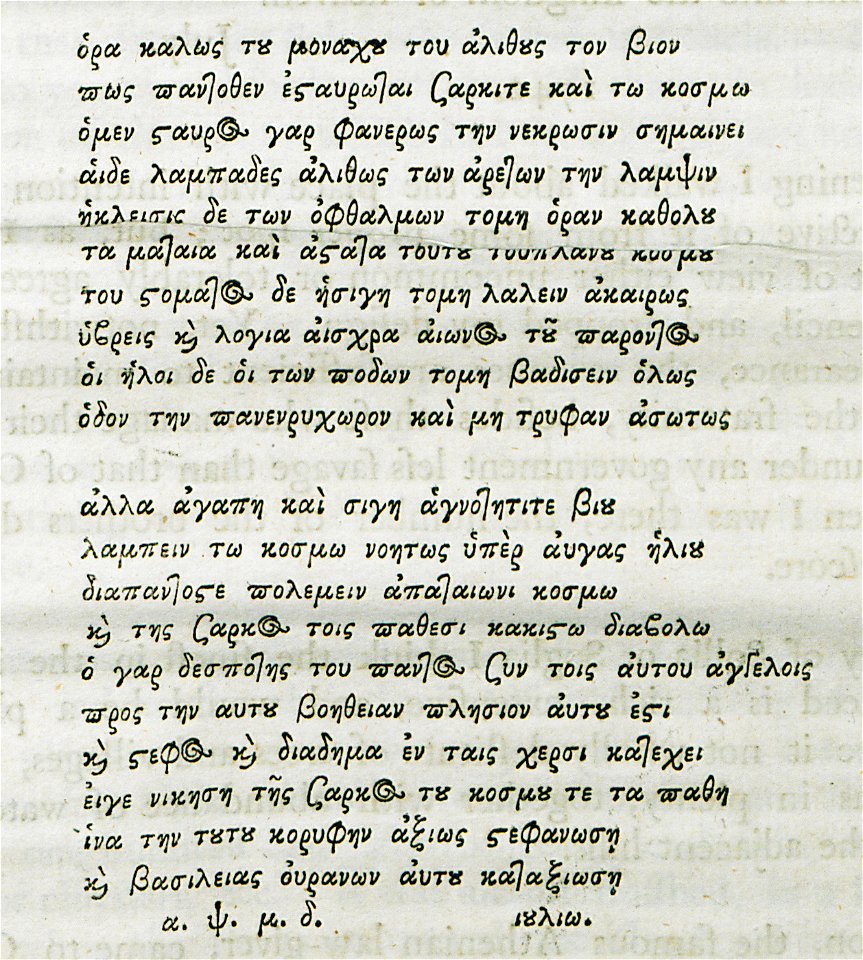 ὁρα καλως τȣ μοναχȣ του ἀλιθȣς τον βιον
πως παντοθεν ἐσταυρωται σαρκιτε καὶ τω κοσμω
ὁμεν σταυρος γαρ φανερως την νεκρωσιν σημαινει
ἁιδε λαμπαδες ἀλιθως των ἀρετων την λαμψιν
ἡκλεισις δε των ὀφθαλμων τομη ὁραν καθολȣ
τα ματαια καὶ ἀστατα τουτȣ τουπλανȣ κοσμȣ
του στοματος δε ἡσιγη τομη λαλειν ἀκαιρως
ὑβρεις κὶ λογια ἀισχρα ἀιωνος τȣ͂ παροντος
ὁι ἡλοι δε ὁι των ποδων τομη βαδισειν ὁλως
ὁδον την πανενρυχωρον καὶ μη τρυφαν ἀσωτως
ἀλλα ἀγαπη καὶ σιγη ἁγνοτητιτε βιȣ
λαμπειν τω κοσμω νοητως ὑπὲρ ἀυγας ἡλιȣ
διαπαντοστε πολεμειν ἀπαταιωνι κοσμω
κὶ της σαρκος τοις παθεσι κακιστω διαβολω
ὁ γαρ δεσποτης του παντος συν τοις ἀυτου ἀγγελοις
προς την αυτȣ βοηθειαν πλησιον ἀυτȣ ἐστι
κὶ στεφος κὶ διαδημα ἐν ταις χερσι κατεχει
ἐιγε νικηση τῆς σαρκος τȣ κοσμȣ τε τα παθη
ἱνα την τȣτȣ κορυφην ἀξιως στεφανωσῃ
κὶ βασιλειας ὀυρανων ἀυτȣ καταξιωσῃ
α. ψ. μ. δ. ιȣλιω.